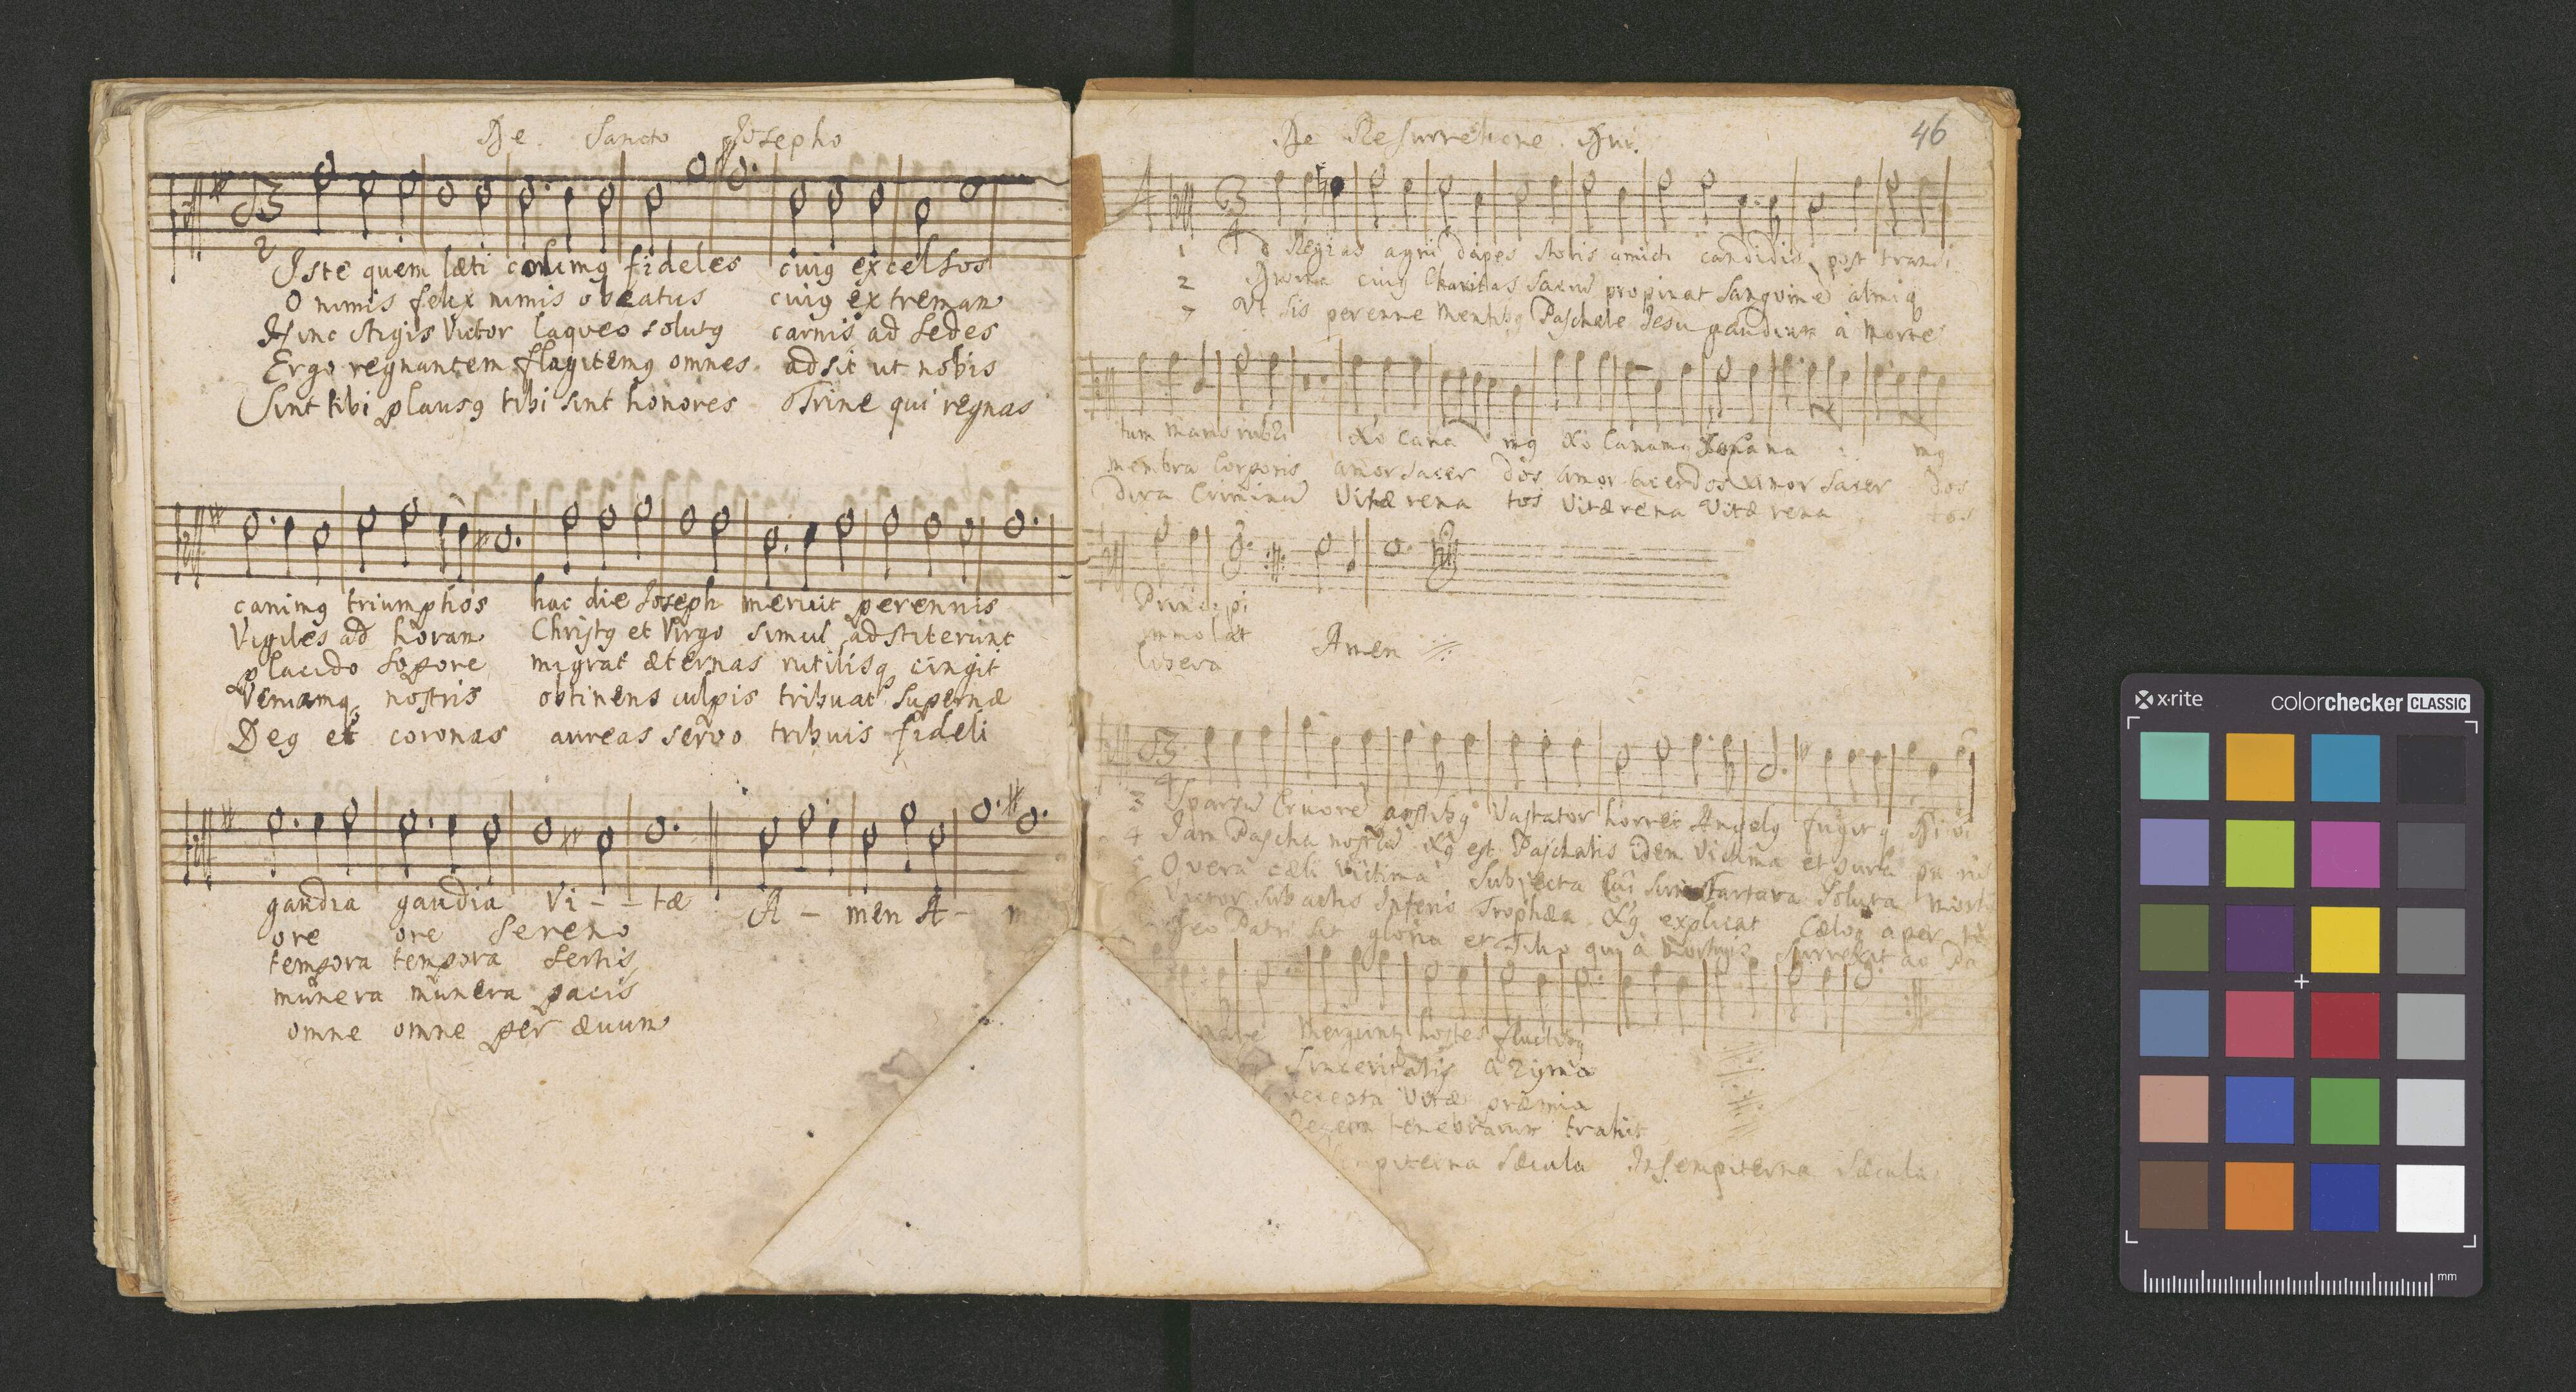 De Sancto Josepho
Iste quem læti colimꝰ fideles cuiꝰ excelsos
O nimis felix nimis o beatus cuiꝰ extremam
Hinc stigis Victor laqueo solutꝰ carnis ad sedes
Ergo regnantem flagitemꝰ omnes adsit ut nobis
Sint tibi plausꝰ tibi sint honores Trine qui regnas
canimꝰ triumphos hac die Joseph meruit perennis
Vigiles ad horam Christꝰ et Virgo simul adstiterunt
placido sopore migrat æternas rutilisq cingit
Veniamq nostris obtinens culpis tribuat supernæ
Deꝰ et coronas aureas servo tribuis fideli
gaudia gaudia Vi - - tæ A - men A - m
ore ore sereno
tempora tempora sertis
munera munera pacis
omne omne per ævum
46
De Resurrectione Dni.
1 Ad Regias agni dapes stolis amicti candidis post transi
2 Divina cuiꝰ Charitas sacrũ propinat sanguinẽ almiq
7 Ut sis perenne mentibꝰ Paschale Jesu gaudium à morte
tum maris rubri Xo cana mꝰ Xo Canamꝰ Xo cana mꝰ
membra Corporis amor sacer dos amor sacerdos amor sacer dos
dira Criminũ Vitæ rena tos Vitæ rena Vitæ rena tos
Principi
immolat Amen
libera
3 Sparsũ Cruorẽ postibꝰ Vastator horret Angelꝰ fugitq Divi
4 Jam Pascha nostrũ Xꝰ est Paschalis idem Victima et pura pu ris
5 O vera cæli Victima Subjecta cui sunt Tartara Soluta mort
Victor subactis Inferis Trophæa Xꝰ explicat Cæloq aper to
Deo Patri sit gloria et Filio qui à mortuis surrexit ac Pa
mare Merguntꝰ hostes fluctibꝰ
Sinceritatis azyma
recepta Vitæ præmia
Regem tenebrarum trahit
sempiterna sæcula In sempiterna sæcula
x-rite colorchecker CLASSIC
mm